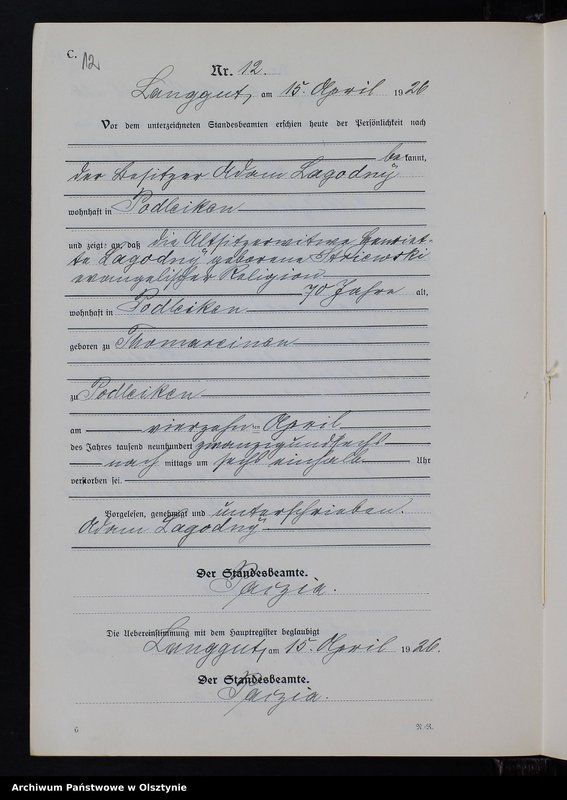 C.
12
Nr. 12.
Langgut, am 15. April 1926.
Vor dem unterzeichneten Standesbeamten erschien heute der Persönlichkeit nach
be kannt,
der Besitzer Adam Lagodny
wohnhaft in Podleiken
und zeigt an, daß die Altsitzerwitwe Henriet-
te Lagodny geborene Striewski
evangelischer Religion
70 Jahre alt,
wohnhaft in Podleiken
geboren zu Thomareinen
zu Podleiken
am vierzehnten April
des Jahres tausend neunhundert zwanzigundsechs
nach mittags um sechs einhalb Uhr
verstorben sei.
Vorgelesen, genehmigt und unterschrieben.
Adam Lagodny
Der Standesbeamte.
Die Uebereinstimmung mit dem Hauptregister beglaubigt
Langgut, am 15. April 1926.
Der Standesbeamte.
6
Archiwum Państwowe w Olsztynie